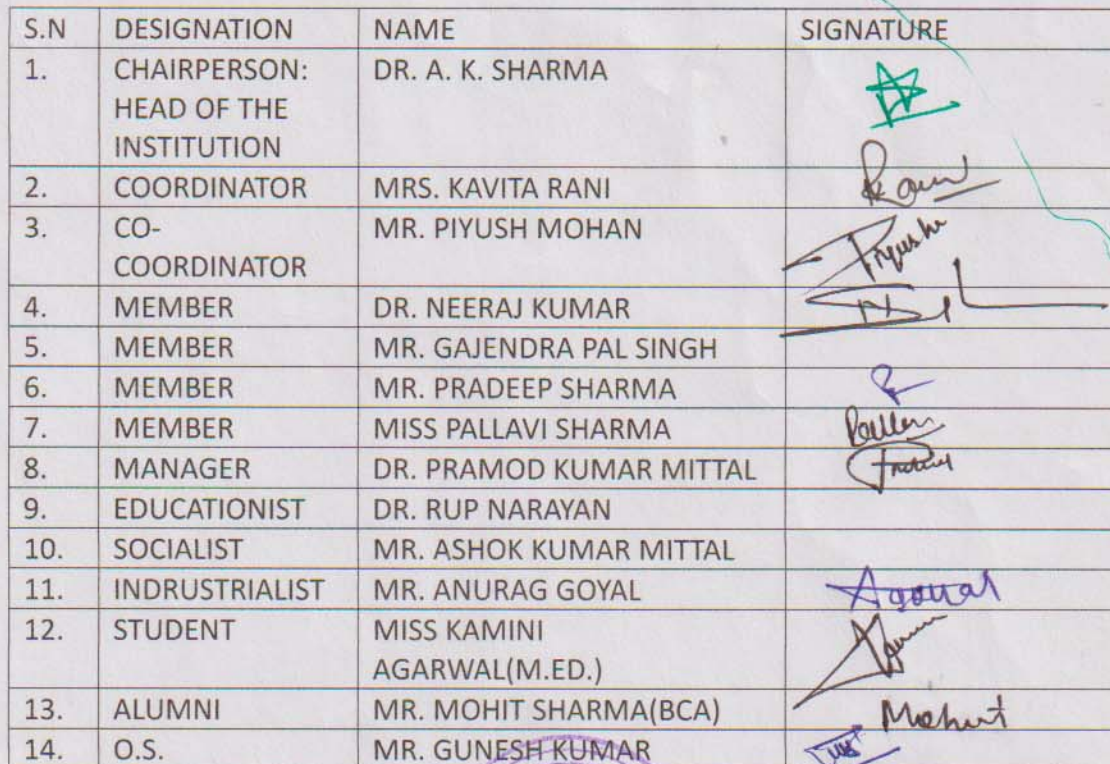 S.N DESIGNATION NAME SIGNATURE
1. CHAIRPERSON: DR. A. K. SHARMA
HEAD OF THE
INSTITUTION
2. COORDINATOR MRS. KAVITA RANI
3. CO- MR. PIYUSH MOHAN Piyush
COORDINATOR
4. MEMBER DR. NEERAJ KUMAR
5. MEMBER MR. GAJENDRA PAL SINGH
6. MEMBER MR. PRADEEP SHARMA
7. MEMBER MISS PALLAVI SHARMA
8. MANAGER DR. PRAMOD KUMAR MITTAL
9. EDUCATIONIST DR. RUP NARAYAN
10. SOCIALIST MR. ASHOK KUMAR MITTAL
11. INDRUSTRIALIST MR. ANURAG GOYAL
12. STUDENT MISS KAMINI
AGARWAL(M.ED.)
13. ALUMNI MR. MOHIT SHARMA(BCA) Mohit
14. O.S. MR. GUNESH KUMAR